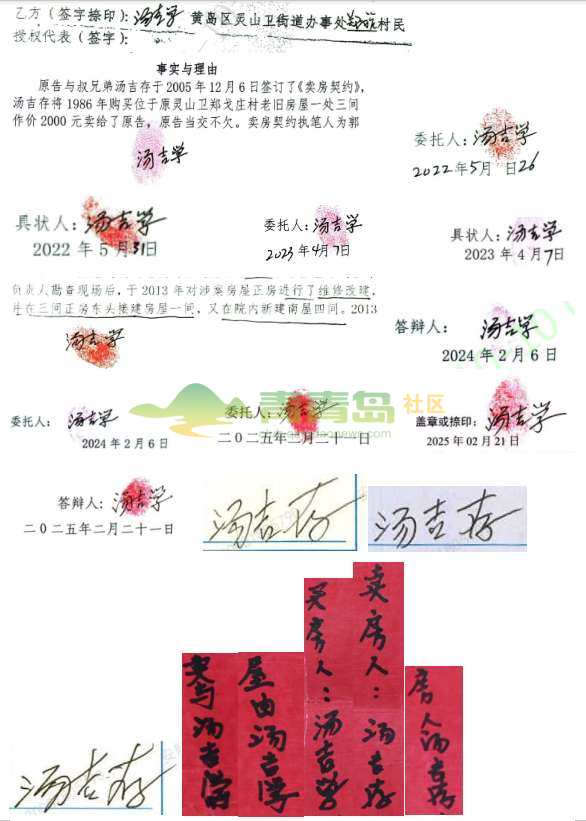 乙方（签字捺印）：汤吉学 黄岛区灵山卫街道办事处 村民
授权代表（签字）：
事实与理由
原告与叔兄弟汤吉存于2005年12月6日签订了《卖房契约》，
汤吉存将1986年购买位于原灵山卫郑戈庄村老旧房屋一处三间
作价2000元卖给了原告，原告当交不欠。卖房契约执笔人为郭
汤吉学
委托人：汤吉学
2022年5月 日26
具状人：汤吉学
2022年5月31日
委托人：汤吉学
2023年4月7日
具状人：汤吉学
2023年4月7日
负责人勘查现场后，于2013年对涉案房屋正房进行了维修改建，
并在三间正房东头接建房屋一间，又在院内新建南屋四间。2013
汤吉学
答辩人：汤吉学
2024年2月6日
委托人：汤吉学
2024年2月6日
委托人：汤吉学
二〇二五年二月二十一日
盖章或捺印：汤吉学
2025年02月21日
青青岛社区
答辩人：汤吉学
二〇二五年二月二十一日
汤吉存
汤吉存
汤吉存
契与汤吉学
屋由汤吉学
买房人：汤吉学
卖房人：汤吉存
房人汤吉存